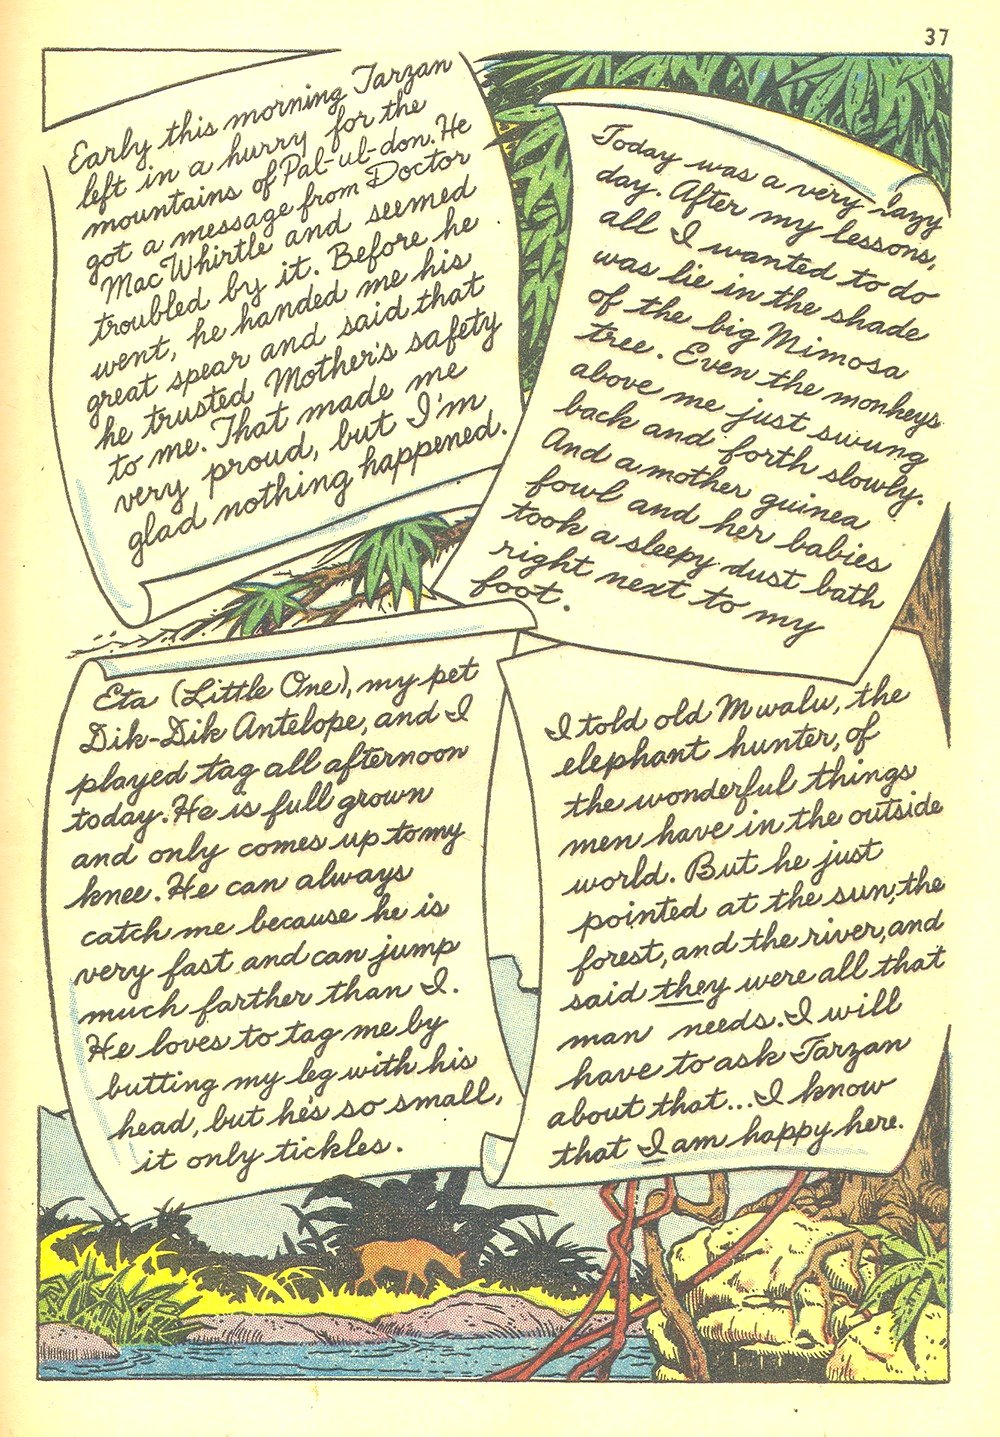 37
Early this morning Tarzan
left in a hurry for the
mountains of Pal-ul-don. He
got a message from Doctor
MacWhirtle and seemed
troubled by it. Before he
went, he handed me his
great spear and said that
he trusted Mother's safety
to me. That made me
very proud, but I'm
glad nothing happened.
Today was a very lazy
day. After my lessons,
all I wanted to do
was lie in the shade
of the big Mimosa
tree. Even the monkeys
above me just swung
back and forth slowly.
And a mother guinea
fowl and her babies
took a sleepy dust bath
right next to my
foot.
Eta (Little One), my pet
Dik-Dik Antelope, and I
played tag all afternoon
today. He is full grown
and only comes up to my
knee. He can always
catch me because he is
very fast and can jump
much farther than I.
He loves to tag me by
butting my leg with his
head, but he's so small,
it only tickles.
I told old Mwalu, the
elephant hunter, of
the wonderful things
men have in the outside
world. But he just
pointed at the sun, the
forest, and the river, and
said they were all that
man needs. I will
have to ask Tarzan
about that... I know
that I am happy here.